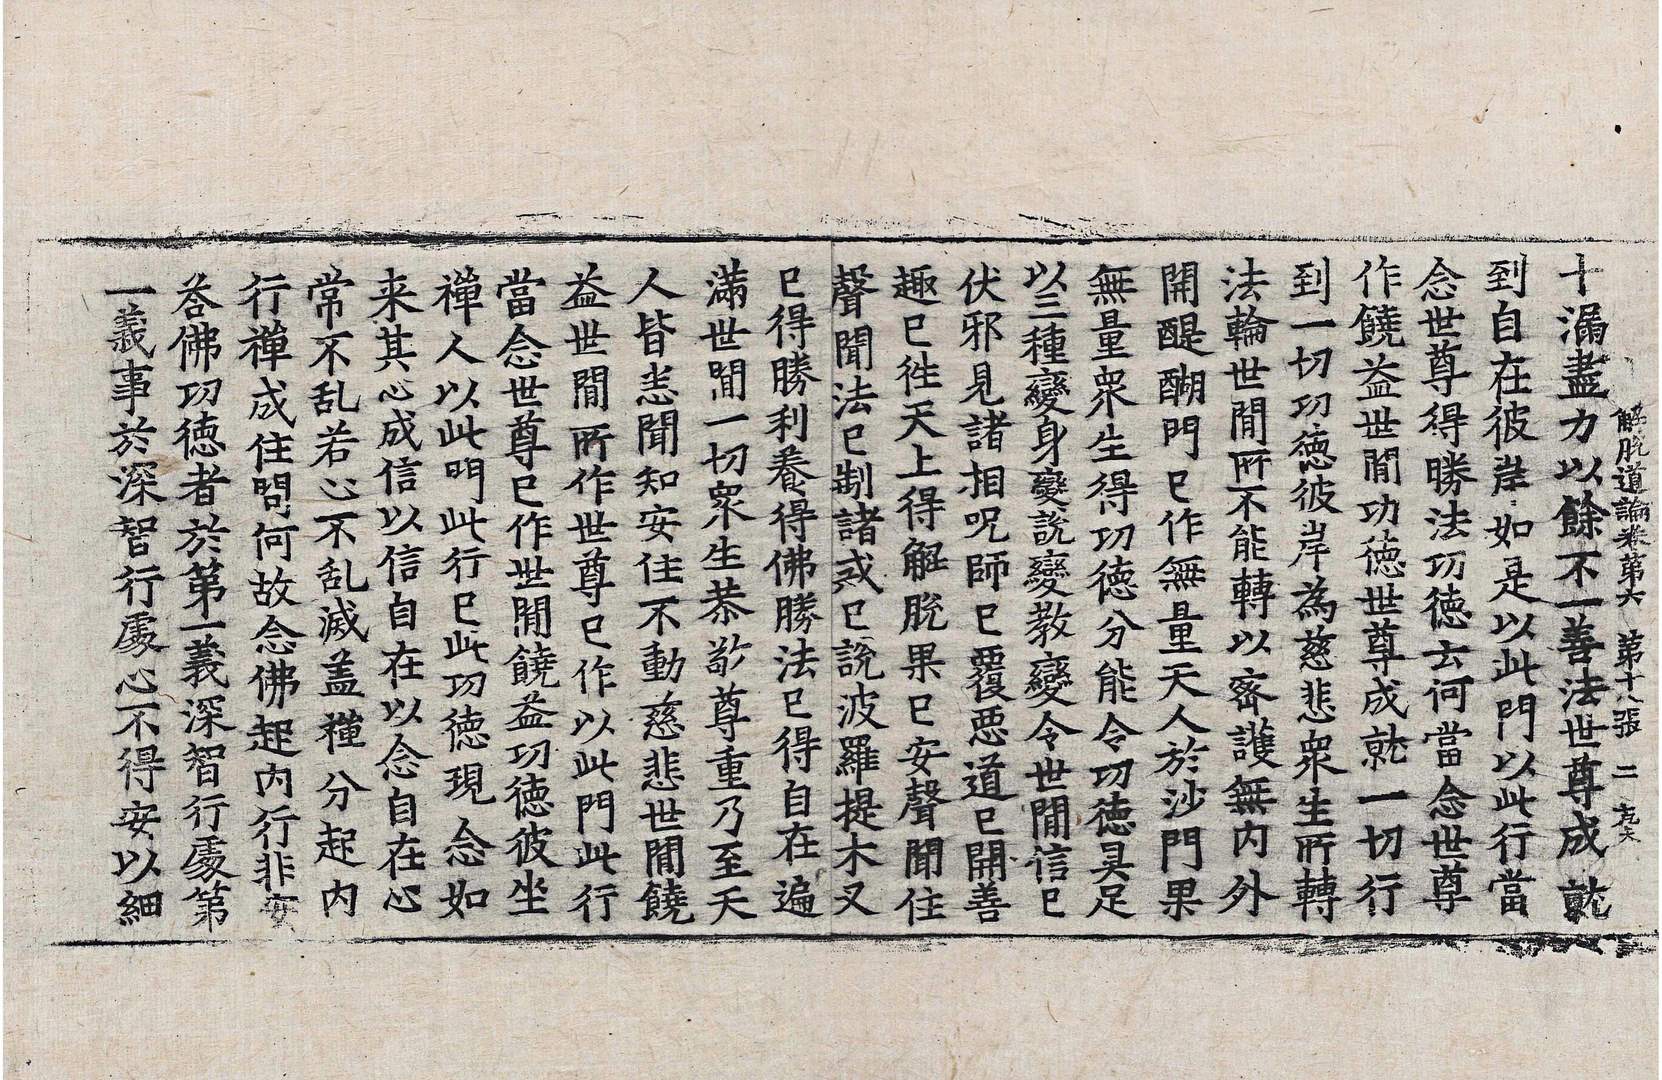 解脫道論卷第六　第十八張　二
十漏盡力以餘不一善法世尊成就
到自在彼岸如是以此門以此行當
念世尊得勝法功德云何當念世尊
作饒益世間功徳世尊成就一切行
到一切功德彼岸為慈悲衆生所轉
法輪世間所不能轉以密護無內外
開醍醐門已作無量天人於沙門果
無量衆生得功德分能令功德具足
以三種變身變說變教變令世間信已
伏邪見諸相呪師已覆惡道已開善
趣已往天上得解脫果已安聲聞住
聲聞法已制諸戒已說波羅提木叉
已得勝利養得佛勝法已得自在遍
滿世間一切衆生恭敬尊重乃至天
人皆悉聞知安住不動慈悲世間饒
益世間所作世尊已作以此門此行
當念世尊已作世間饒益功徳彼坐
禪人以此門此行已此功徳現念如
来其心成信以信自在以念自在心
常不乱若心不乱滅盖禪分起內
行禪成住問何故念佛起內行非安
荅佛功徳者於第一義深智行處第
一義事於深智行處心不得安以細